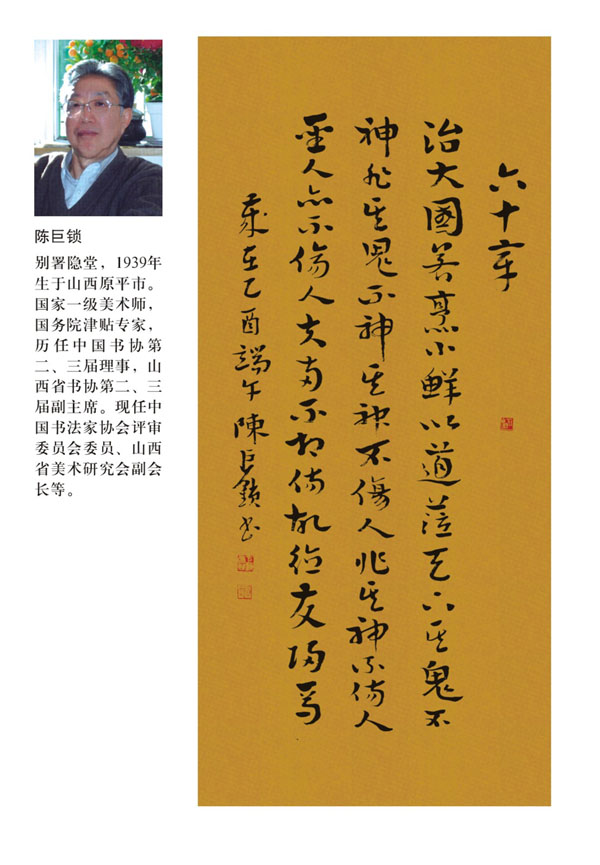 陈巨锁
别署隐堂，1939年
生于山西原平市。
国家一级美术师，
国务院津贴专家，
历任中国书协第
二、三届理事，山
西省书协第二、三
届副主席。现任中
国书法家协会评审
委员会委员、山西
省美术研究会副会
长等。
六十章
治大國若烹小鮮以道莅天下其鬼不
神非其鬼不神其神不傷人非其神不傷人
聖人亦不傷人夫兩不相傷故德交歸焉
歲在乙酉端午陳巨鎖書